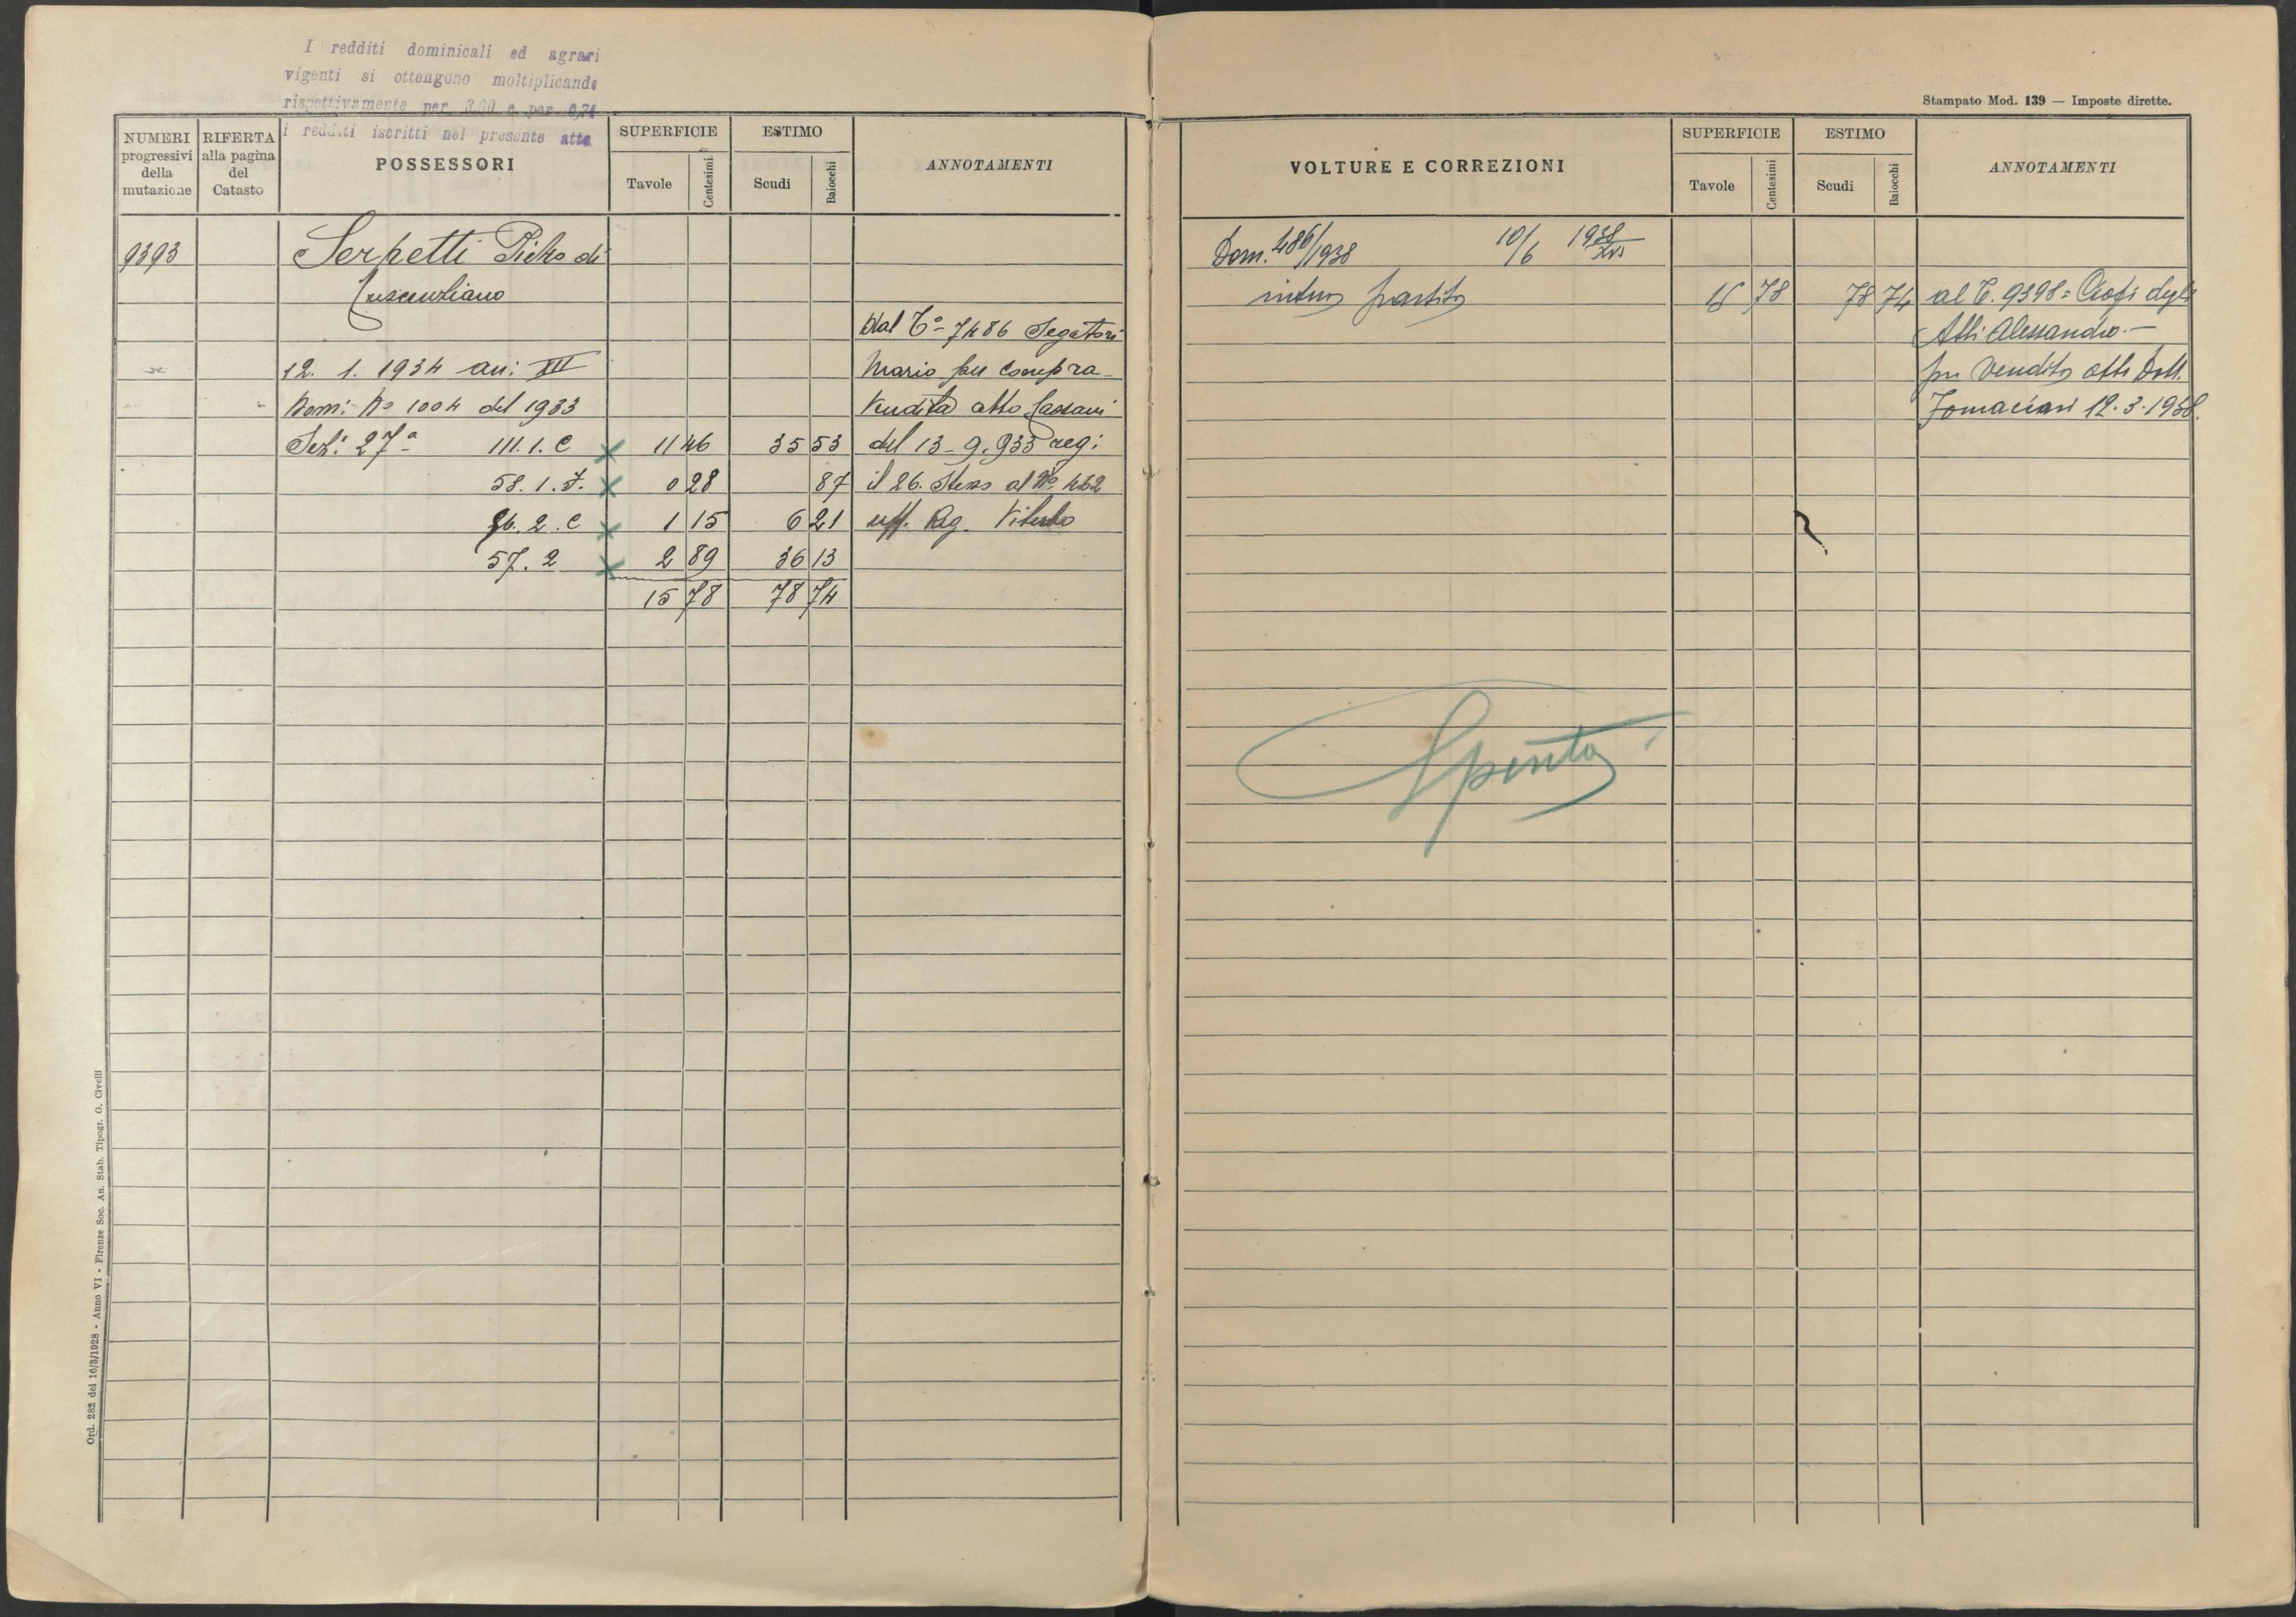 I redditi dominicali ed agrari
vigenti si ottengono moltiplicando
rispettivamente per 3,00 e per 0,74
i redditi iscritti nel presente atto
NUMERI progressivi della mutazione
RIFERTA alla pagina del Catasto
POSSESSORI
SUPERFICIE
Tavole
Centesimi
ESTIMO
Scudi
Baiocchi
ANNOTAMENTI
9393
Serpetti Pietro di
Dal T° 7486 Segattori
12. 1. 1934 an: XII
Mario per compra
Dom: N° 1004 del 1933
vendita atto Cassani
Sez: 27ª 111. 1. C 11 46 35 53 del 13-9-933 reg:
58. 1. 0 28 87 il 26. Stesso al N° 462
2. C 1 15 6 21 uff. Reg. Viterbo
57. 2 2 89 36 13
15 78 78 74
Ord. 282 del 16/3/1928 - Anno VI - Firenze Soc. An. Stab. Tipogr. G. Civelli
Stampato Mod. 139 — Imposte dirette.
VOLTURE E CORREZIONI
SUPERFICIE
Tavole
Centesimi
ESTIMO
Scudi
Baiocchi
ANNOTAMENTI
Dom. 486/1938 10/6 1938 XVI
intera partita 15 78 78 74 al T. 9398 = Ciofi degli
Atti Alessandro. —
per vendita atto Dott.
Fornaciari 12. 3. 1938.
Spenta